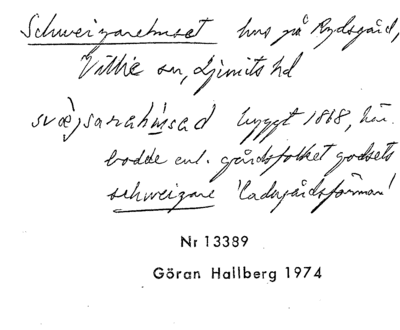 Schweizarehuset hus på Rydsgård,
Villie sn, Ljunits hd
svæjsarahused byggt 1868, här
bodde enl. gårdsfolket godsets
schweizare 'ladugårdsförman'
Nr 13389
Göran Hallberg 1974